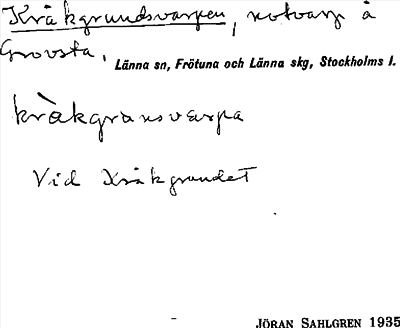 Kråkgrundsvarpen, notvarp å
Grovsta.
Länna sn, Frötuna och Länna skg, Stockholms l.
kràkgransvarpa
Vid Kråkgrundet
JÖRAN SAHLGREN 1935